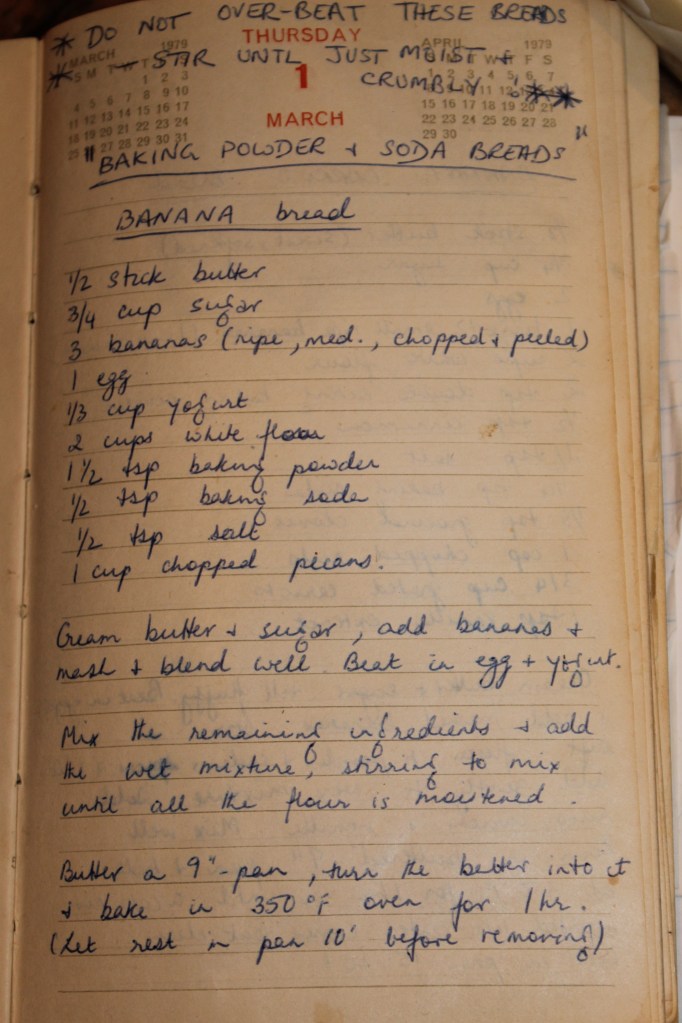 * DO NOT OVER-BEAT THESE BREADS
MARCH 1979
THURSDAY
APRIL 1979
* — STIR UNTIL JUST MOIST &
CRUMBLY !! **
S M T W T F S
1 2 3
4 5 6 7 8 9 10
11 12 13 14 15 16 17
18 19 20 21 22 23 24
25 27 28 29 30 31
1
MARCH
M T W T F S
1 2 3 4 5 6 7
8 9 10 11 12 13 14
15 16 17 18 19 20 21
22 23 24 25 26 27 28
29 30
"BAKING POWDER & SODA BREADS"
BANANA bread
1/2 stick butter
3/4 cup sugar
3 bananas (ripe, med., chopped & peeled)
1 egg
1/3 cup yogurt
2 cups white flour
1 1/2 tsp baking powder
1/2 tsp baking soda
1/2 tsp salt
1 cup chopped pecans.
Cream butter & sugar, add bananas &
mash & blend well. Beat in egg + yogurt.
Mix the remaining ingredients & add
the wet mixture, stirring to mix
until all the flour is moistened.
Butter a 9"-pan, turn the batter into it
& bake in 350°F oven for 1 hr.
(Let rest in pan 10' before removing)